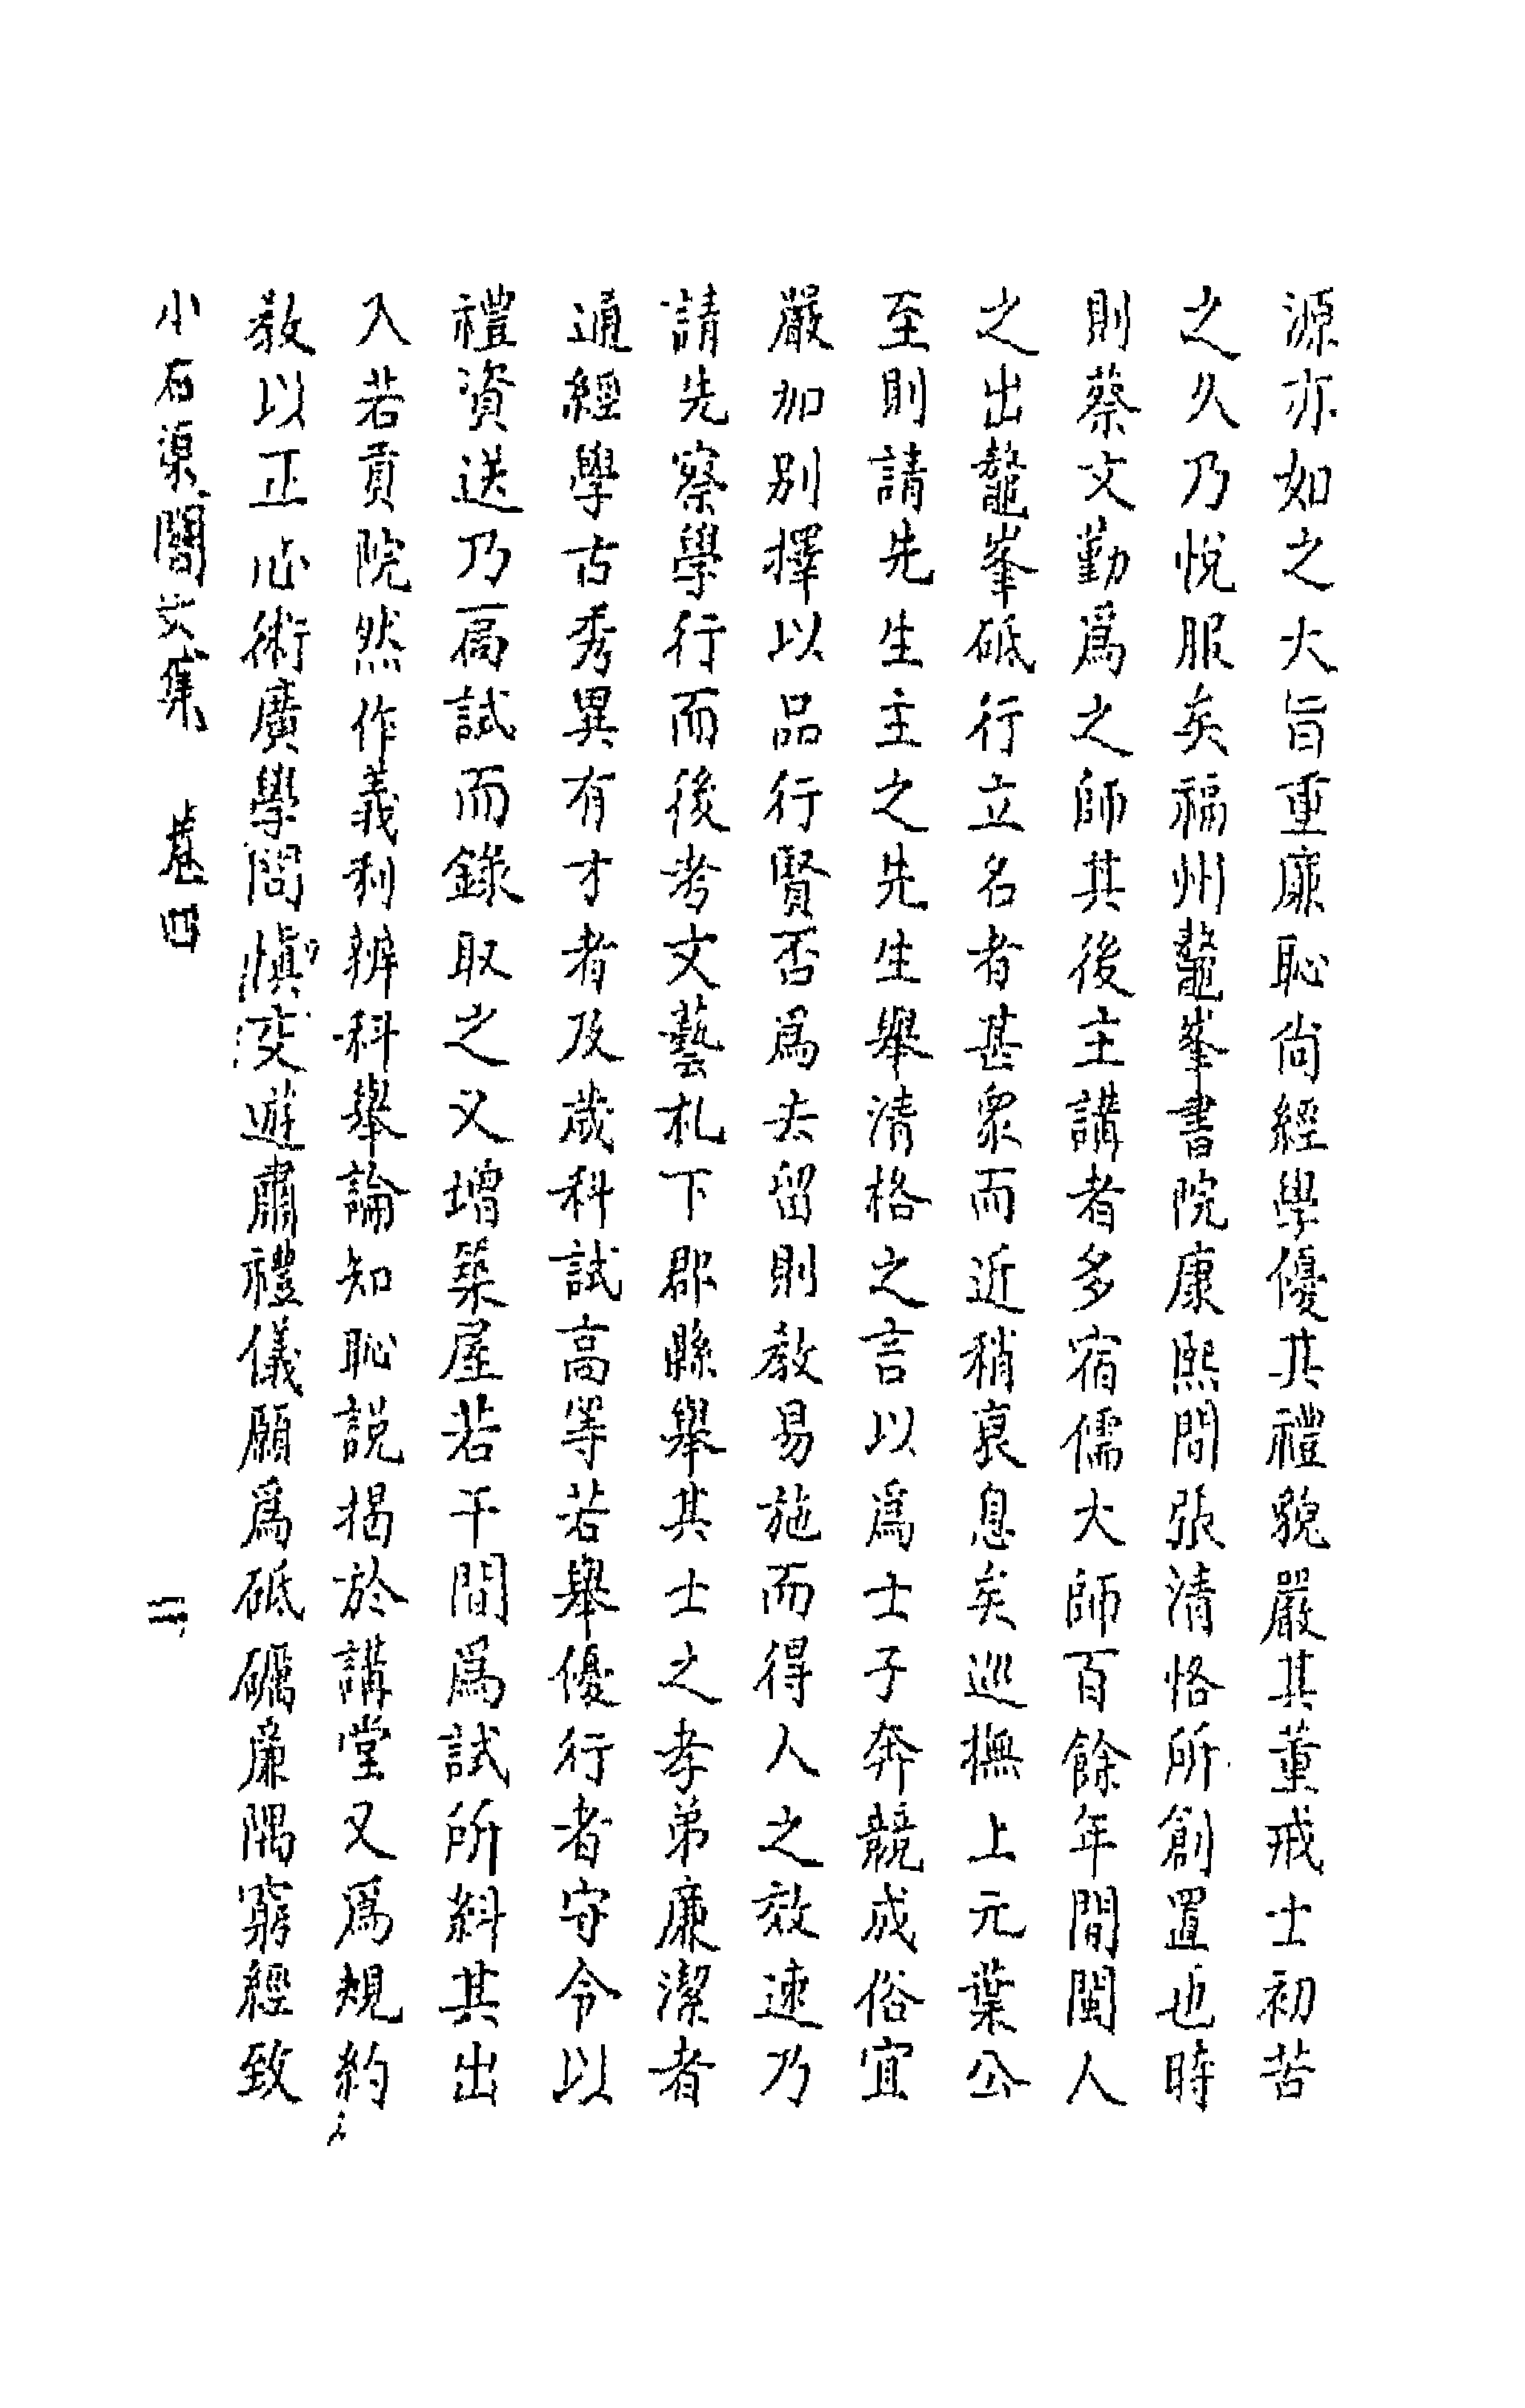 源亦如之大旨重廉恥尙經學優其禮貌嚴其董戒士初苦
之久乃悅服矣福州鼇峯書院康熙間張清恪所創置也時
則蔡文勤爲之師其後主講者多宿儒大師百餘年間閩人
之出鼇峯砥行立名者甚衆而近稍衰息矣巡撫上元葉公
至則請先生主之先生舉清格之言以爲士子奔競成俗宜
嚴加別擇以品行賢否爲去留則教易施而得人之效速乃
請先察學行而後考文藝札下郡縣舉其士之孝弟廉潔者
通經學古秀異有才者及歲科試高等若舉優行者守令以
禮資送乃扃試而錄取之又增築屋若干間爲試所糾其出
入若貢院然作義利辨科舉論知恥說揭於講堂又爲規約
教以正心術廣學問愼交遊肅禮儀願爲砥礪廉隅窮經致
小石渠閣文集　卷四　二